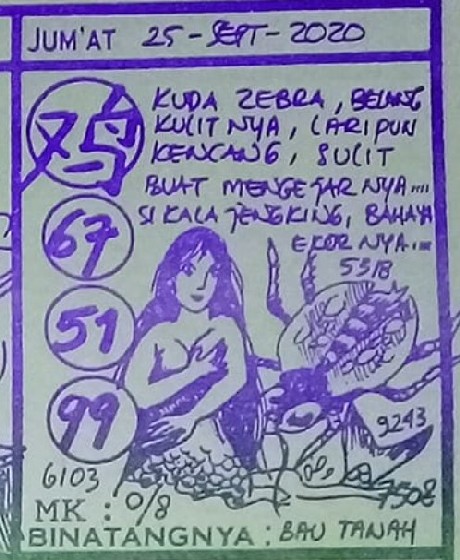 JUM'AT 25-SEPT-2020
鸡
KUDA ZEBRA, BELANG
KULIT NYA, LARIPUN
KENCANG, SULIT
BUAT MENGEJAR NYA....
SI KALA JENGKING, BAHAYA
EKOR NYA....
67
5318
51
99
9243
6103
7508
MK : 0/8
BINATANGNYA : BAU TANAH